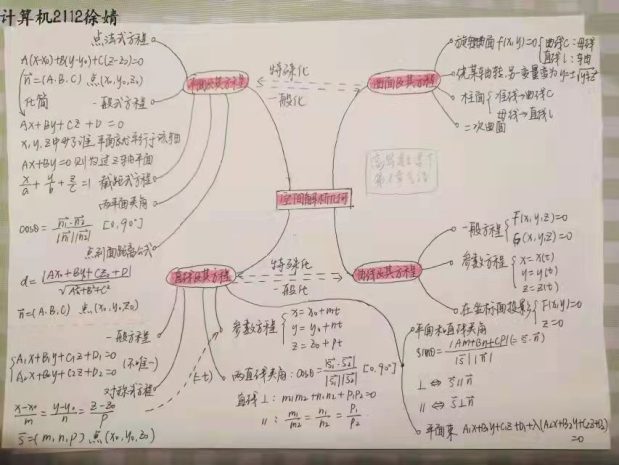 计算机2112徐婧
点法式方程
A(x-x₀)+B(y-y₀)+C(z-z₀)=0
n⃗=(A.B.C) 点(x₀,y₀,z₀)
化简
一般式方程
Ax+By+Cz+D=0
Ax+By=0
x/a + y/b + z/c =1 截距式方程
两平面夹角
cosθ= |n₁⃗·n₂⃗| / |n₁⃗||n₂⃗| [0,90°]
点到面距离公式
d= |Ax₀+By₀+Cz₀+D| / √A²+B²+C²
平面及其方程
特殊化
一般化
曲面及其方程
旋转曲面 f(x,y)=0 { 曲线C:母线
直线L:转轴
柱面 { 准线→曲线C
母线→直线L
二次曲面
空间解析几何
直线及其方程
特殊化
一般化
曲线及其方程
一般方程 { F(x,y,z)=0
G(x,y,z)=0
参数方程 { x=x(t)
y=y(t)
z=z(t)
在坐标面投影 { F(x,y)=0
z=0
n⃗=(A.B.C) 点(x₀,y₀,z₀)
一般方程
{ A₁x+B₁y+C₁z+D₁=0
A₂x+B₂y+C₂z+D₂=0 (不唯一)
对称式方程
x-x₀/m = y-y₀/n = z-z₀/p
s⃗=(m,n,p) 点(x₀,y₀,z₀)
(=t)
参数方程 { x=x₀+mt
y=y₀+nt
z=z₀+pt
两直线夹角:cosθ= |s₁⃗·s₂⃗| / |s₁⃗||s₂⃗| [0,90°]
直线⊥:m₁m₂+n₁n₂+p₁p₂=0
∥: m₁/m₂ = n₁/n₂ = p₁/p₂
平面和直线夹角
sinθ= |Am+Bn+Cp|(=s⃗·n⃗) / |s⃗||n⃗|
⊥ ⇔ s⃗∥n⃗
∥ ⇔ s⃗⊥n⃗
平面束 A₁x+B₁y+C₁z+D₁+λ(A₂x+B₂y+C₂z+D₂)
=0